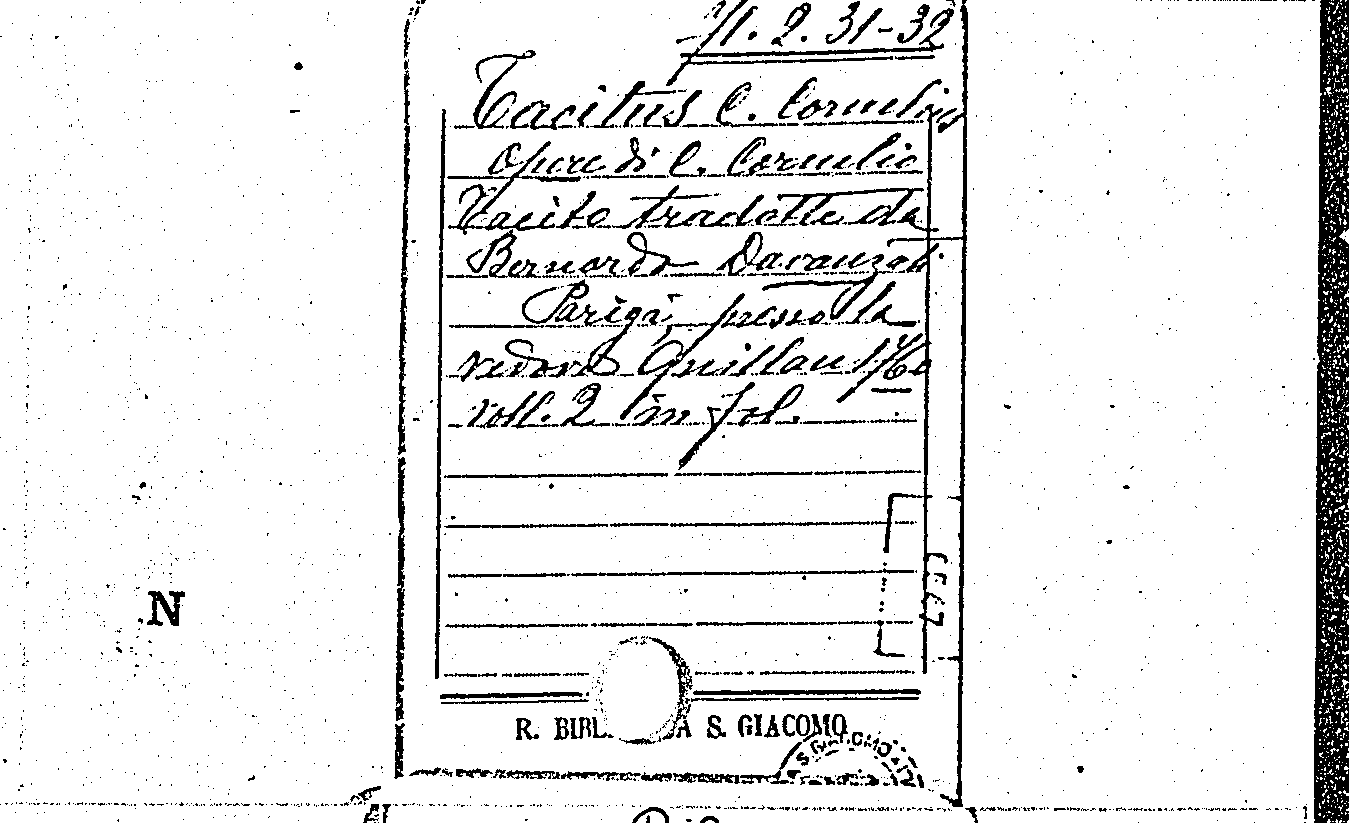 71. 2. 31-32
Tacitus C. Cornelius
Opere di C. Cornelio
Tacito tradotte da
Bernardo Davanzati.
Parigi, presso la
vedova Quillau 1760
voll. 2 in fol.
N
R. BIBL A S. GIACOMO
S. GIACOMO